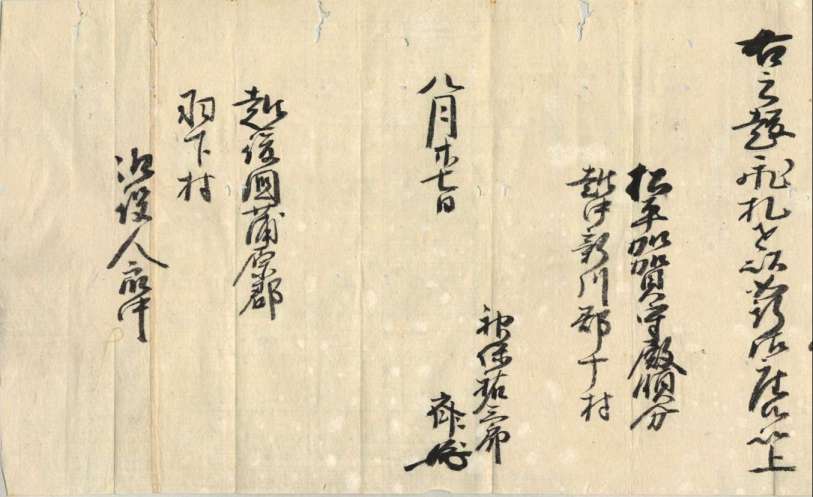 右之趣飛札を以如斯御座候以上
松平加賀守殿領分
越中新川郡十村
神保祐三郎
八月廿七日
越後国蒲原郡
羽下村
御役人衆中